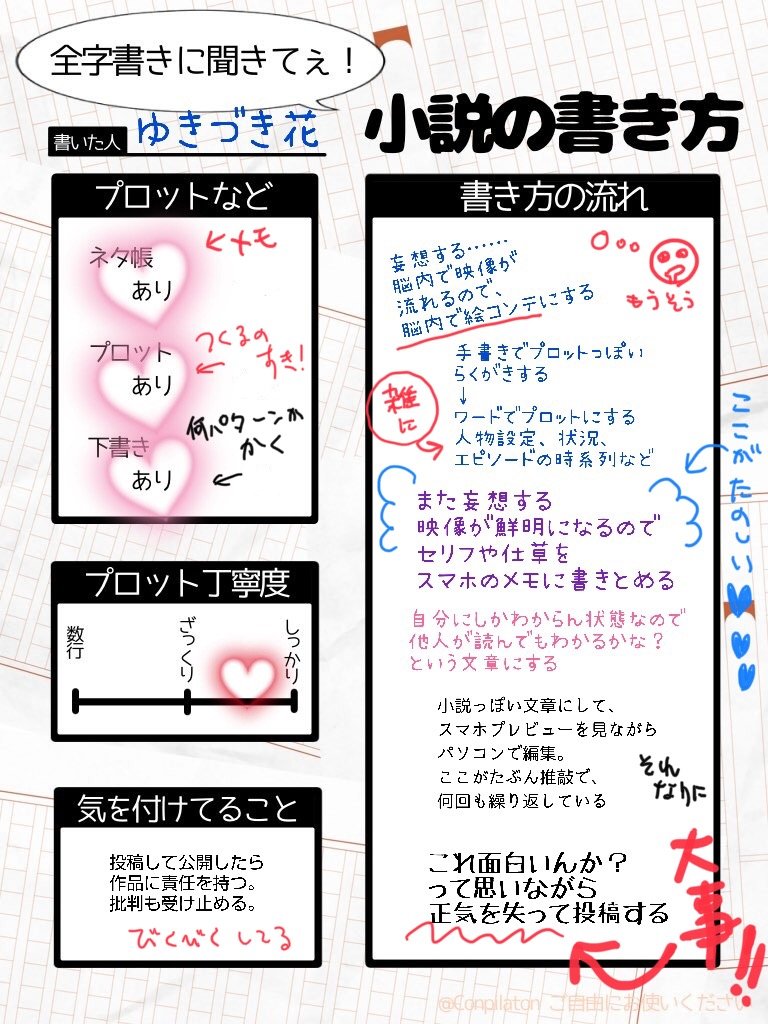 全字書きに聞きてぇ！
小説の書き方
書いた人 ゆきづき花
プロットなど
ネタ帳
あり
←メモ
プロット
あり
つくるの
すき！
←
下書き
あり
何パターンか
かく
←
プロット丁寧度
数行
ざっくり
しっかり
気を付けてること
投稿して公開したら
作品に責任を持つ。
批判も受け止める。
びくびくしてる
書き方の流れ
妄想する……
脳内で映像が
流れるので、
脳内で絵コンテにする
もうそう
手書きでプロットっぽい
らくがきする
↓
ワードでプロットにする
人物設定、状況、
エピソードの時系列など
雑に
また妄想する
映像が鮮明になるので
セリフや仕草を
スマホのメモに書きとめる
ここがたのしい
自分にしかわからん状態なので
他人が読んでもわかるかな？
という文章にする
小説っぽい文章にして、
スマホプレビューを見ながら
パソコンで編集。
ここがたぶん推敲で、
何回も繰り返している
それ
なりに
これ面白いんか？
って思いながら
正気を失って投稿する
大事!!
@Conpilaton ご自由にお使いください